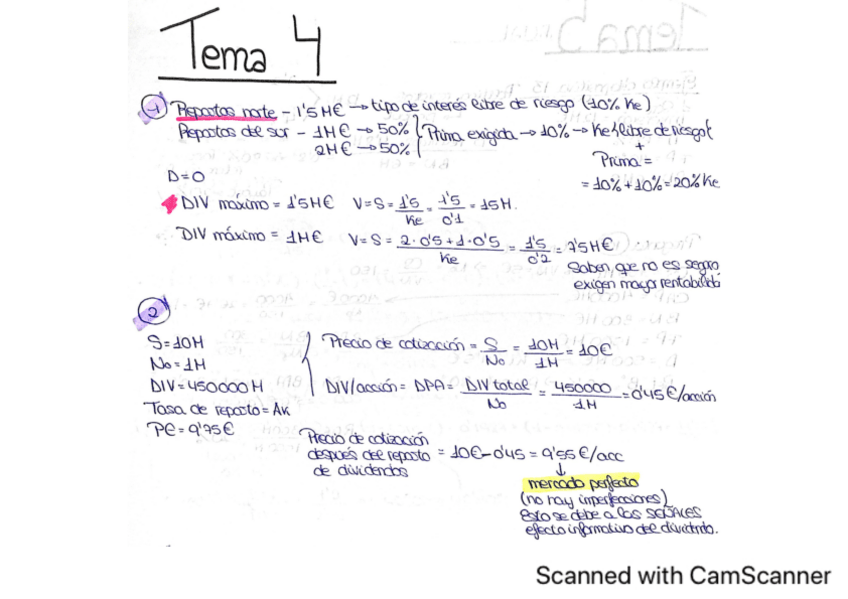 Tema 4
1 Repartos norte - 1'5 M€ → tipo de interés libre de riesgo (10% Ke)
Repartos del sur - 1M€ → 50% } Prima exigida → 10% → Ke = libre de riesgo
2M€ → 50%
+
Prima =
= 10% + 10% = 20% Ke
D=0
DIV máximo = 1'5M€ V=S= 1'5/Ke = 1'5/0'1 = 15M.
DIV máximo = 1M€ V=S= 2·0'5+1·0'5/Ke = 1'5/0'2 = 7'5M€
Saben que no es seguro
exigen mayor rentabilidad
2
S=10M
No=1M
DIV=450000M
Tasa de reparto=AK
PE=9'75€
Precio de cotización = S/No = 10M/1M = 10€
DIV/acción = DPA = DIV total/No = 450000/1M = 0'45€/acción
Precio de cotización
después del reparto = 10€-0'45 = 9'55€/acc
de dividendos
↓
mercado perfecto
(no hay imperfecciones)
Esto se debe a las SEÑALES
efecto informativo del dividendo.
Scanned with CamScanner